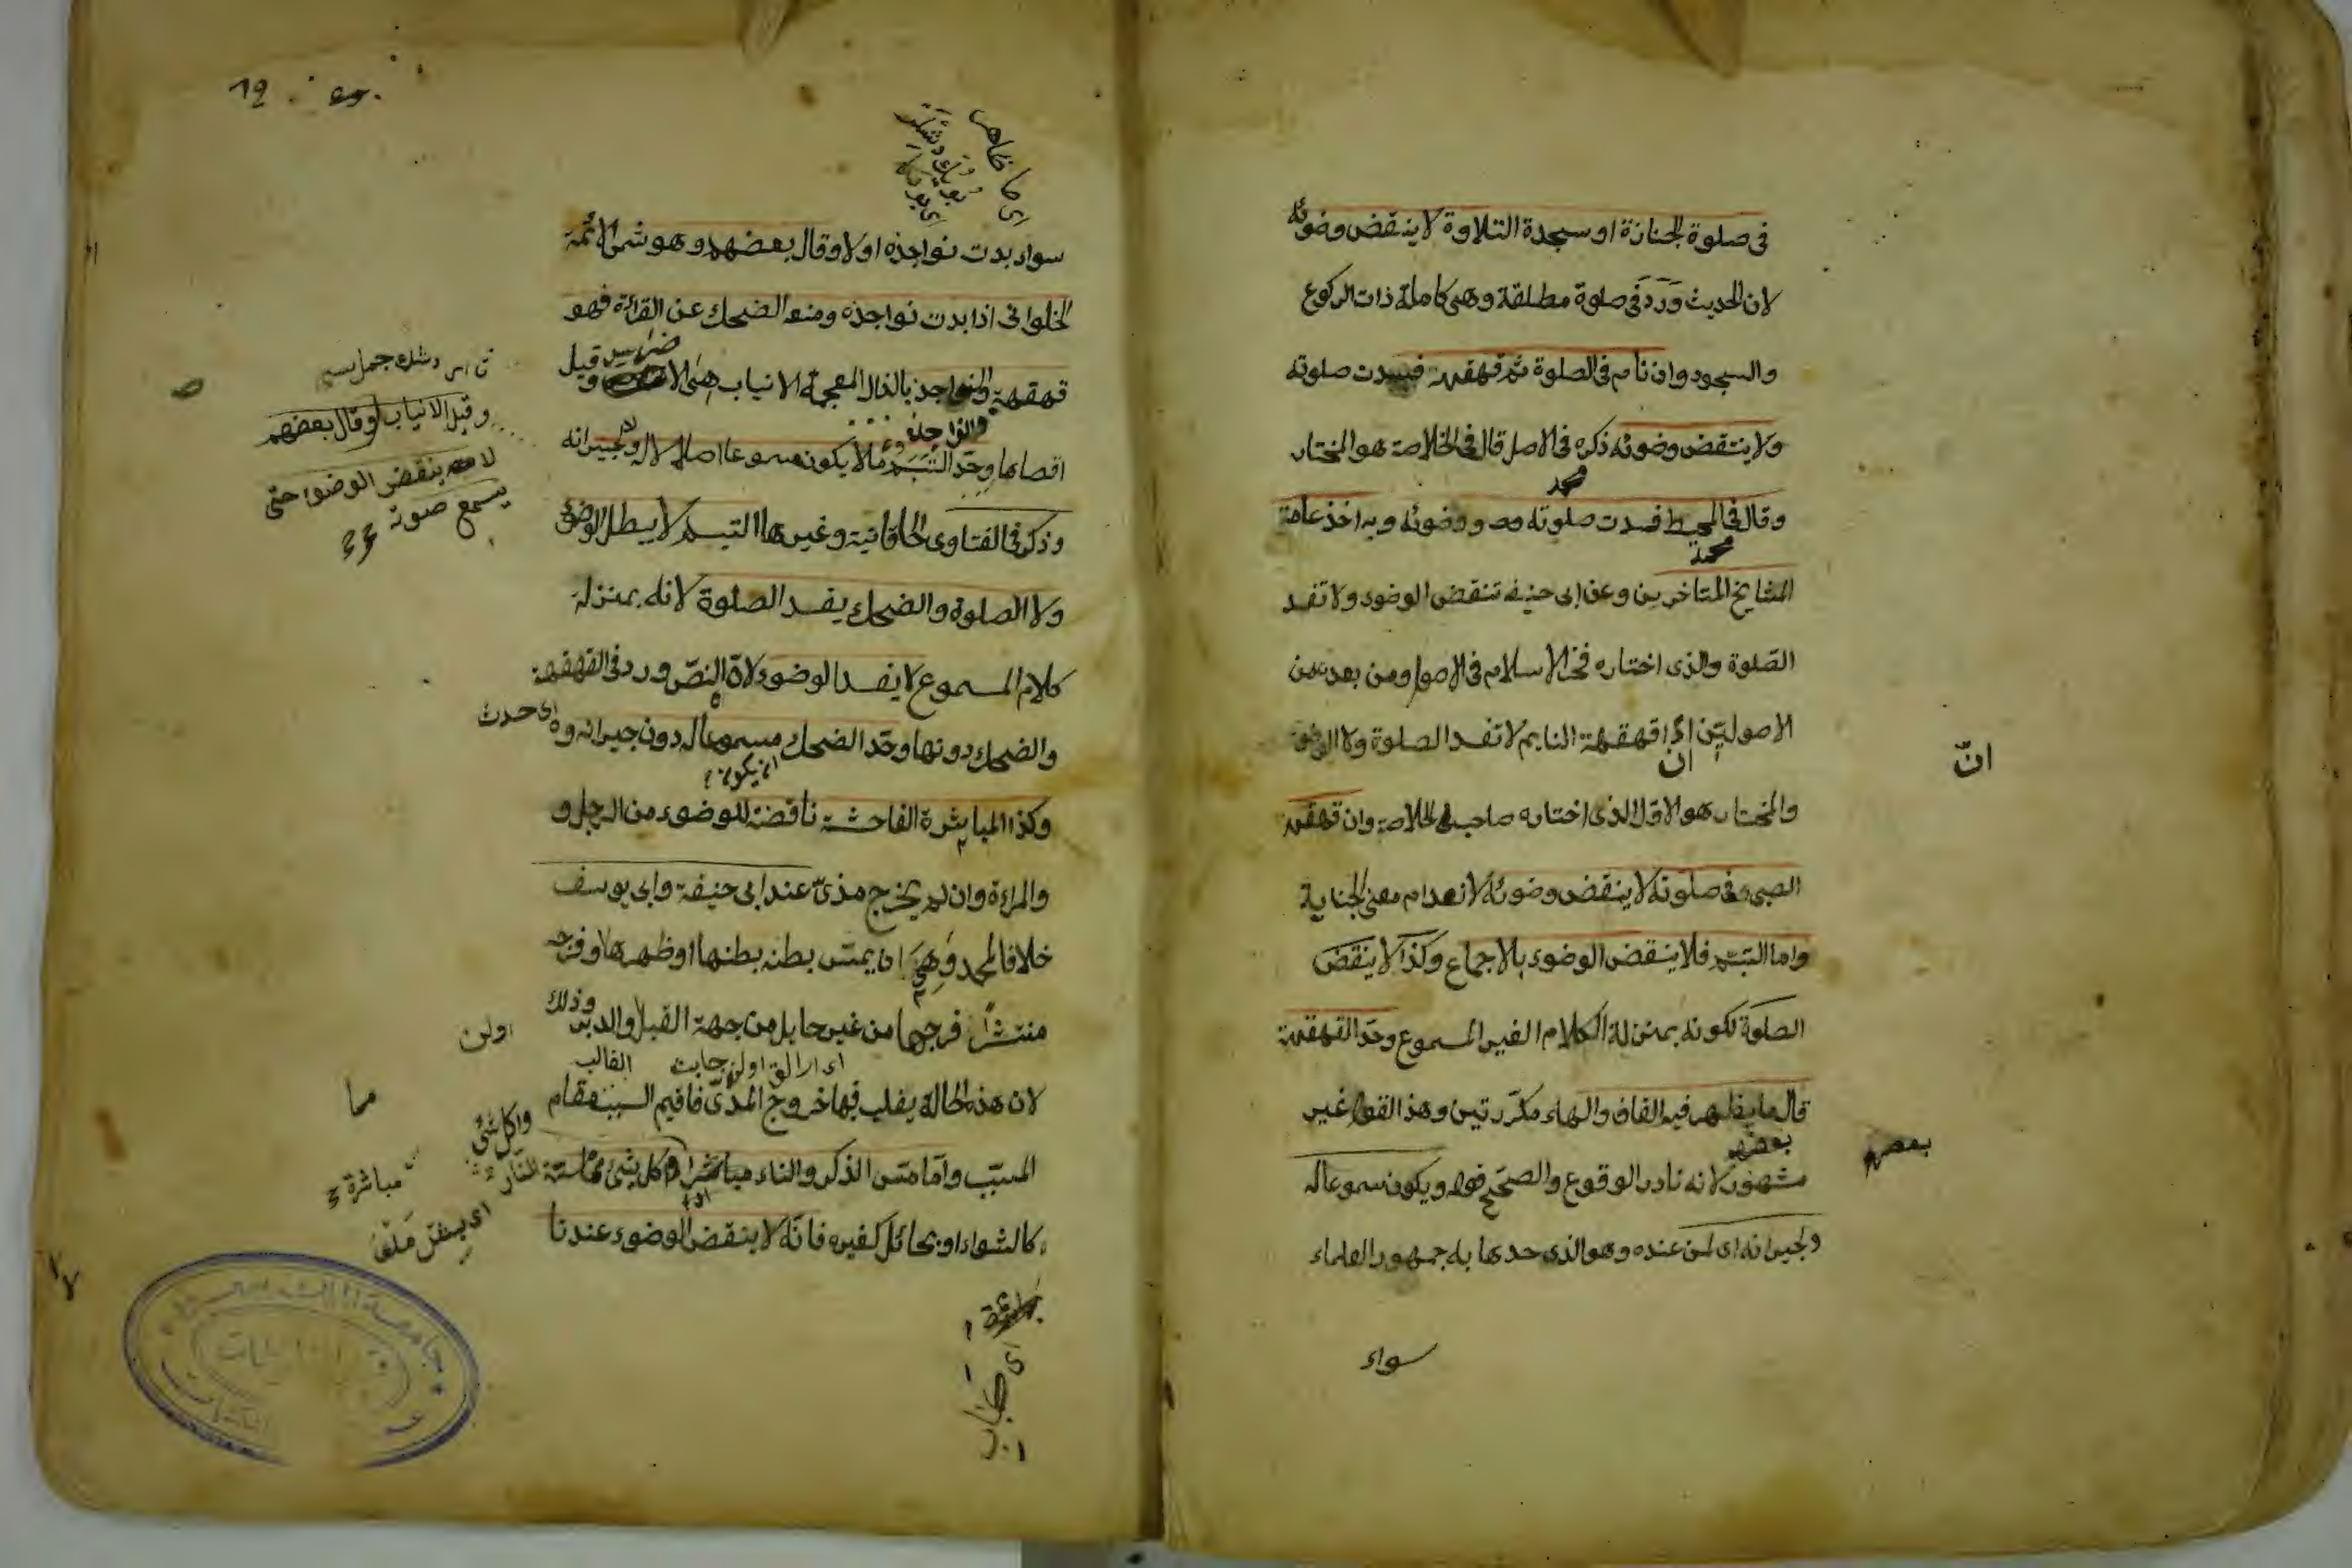 فى صلوة الجنازة او سجدة التلاوة لا ينتقض وضوئه
لان الحديث وَرَدَ فى صلوة مطلقة وهى كاملة ذات الركوع
والسجود وان نام فى الصلوة ثم قهقهة فسدت صلوته
ولا ينتقض وضوئه ذكره فى الاصل قال فى الخلاصة هو المختار
وقال فى المحيط فسدت صلوته ووضوئه وبه اخذ عامة
المشايخ المتاخرين وعن ابى حنيفة تنقض الوضوء ولا تفسد
الصّلوة والذى اختاره فخر الاسلام فى الاصول ومن بعده من
الاصوليّن انّ قهقهة النايم لا تفسد الصلوة ولا الوضوء
انّ
والمختار هو الاوّل الذى اختاره صاحب الخلاصة وان قهقهة
الصبى فى صلوته لا ينقض وضوئه لانعدام معنى الجناية
واما التبسّم فلا ينقض الوضوء بالاجماع وكذا لا ينقض
الصلوة لكونه بمنزلة الكلام الغير المسموع وحدّ القهقهة
قال ما يظهر فيه القاف والهاء مكرّرتين وهذا القول غير
بعضهم
بعضهم
مشهور لانه نادر الوقوع والصحيح قوله ويكون مسموعا له
ولجيرانه اى لمن عنده وهو الذى حدها به جمهور العلماء
سواء
سواء بدت نواجذه اولا وقال بعضهم وهو شمس الائمة
الحلوانى اذا بدت نواجذه ومنعه الضحك عن القرائة فهو
قهقهة والنواجذ بالذال المعجمة الانياب هى الاضراس وقيل
اقصاها وحدّ التبسّم ما لا يكون مسموعا اصلا لا له ولا لجيرانه
وذكر فى الفتاوى الخاقانية وغيرها التبسم لا يبطل الوضوء
ولا الصلوة والضحك يفسد الصلوة لانه بمنزلة
كلام المسموع لا يفسد الوضوء لانّ النصّ ورد فى القهقهة
والضحك دونها وحدّ الضحك مسموعا له دون جيرانه
ان يكون
وكذا المباشرة الفاحشة ناقضة للوضوء من الرجل و
والمراءة وان لم يخرج مذىّ عند ابى حنيفة وابى يوسف
خلافا لمحمد وَهِىَ ان يمسّ بطنه بطنها او ظهرها وفرجه
منتشراً فرجها من غير حايل من جهة القبل والدبر وذلك
لان هذه الحالة يغلب فيها خروج المذىّ فاقيم السبب مقام
المسبّب وامّا مسّ الذكر والنساء مباشرا واكل شئ ممّا مسّته النّار
كالشواء او بحائل كغيره فانّه لا ينقض الوضوء عندنا
وقيل الانياب وقال بعضهم
لا ينقض الوضوء حتى
يسمع صوته
اولن
الغالب
مما
واكل شئ
مباشرة